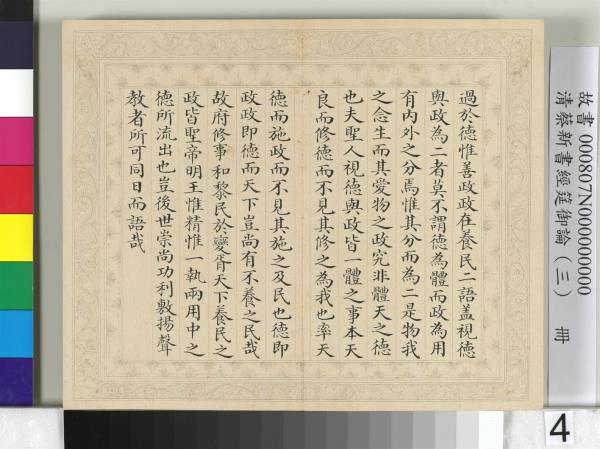 過於德惟善政政在養民二語蓋視德
與政為二者莫不謂德為體而政為用
有內外之分焉惟其分而為二是物我
之念生而其愛物之政究非體天之德
也夫聖人視德與政皆一體之事本天
良而修德而不見其修之為我也率天
德而施政而不見其施之及民也德即
政政即德而天下豈尚有不養之民哉
故府修事和黎民於變胥天下養民之
政皆聖帝明王惟精惟一執兩用中之
德所流出也豈後世崇尚功利敷揚聲
教者所可同日而語哉
故書 000807N000000000
清蔡新書經筵御論（三） 冊
4